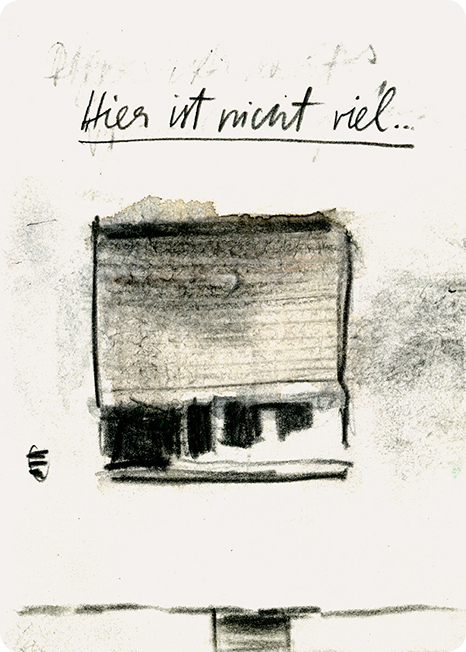 Hier ist nicht viel...